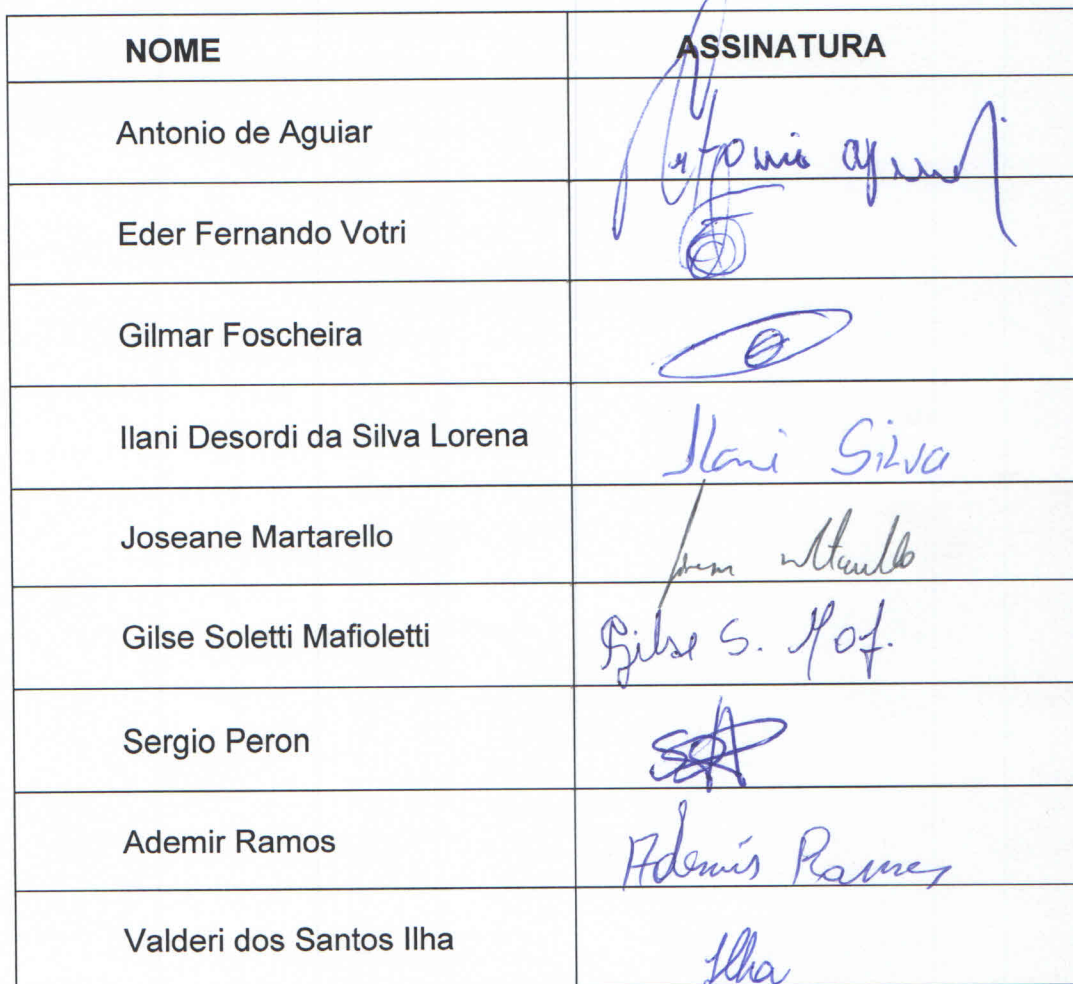 NOME ASSINATURA
Antonio de Aguiar Antonio
Eder Fernando Votri
Gilmar Foscheira
Ilani Desordi da Silva Lorena Ilani Silva
Joseane Martarello
Gilse Soletti Mafioletti Gilse S. Maf.
Sergio Peron
Ademir Ramos Ademir Ramos
Valderi dos Santos Ilha Ilha